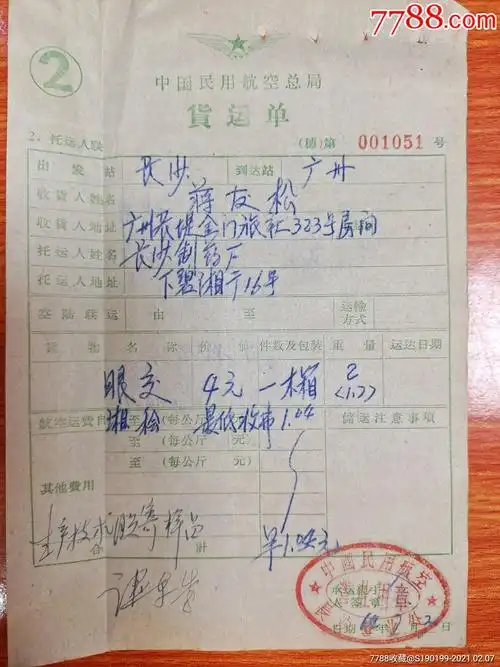 7788.com
②
中国民用航空总局
貨运单
2、托运人联 (穗)第 001051 号
出发站 长沙 到达站 广州
收货人姓名 蒋友松
收货人地址 广州长堤金门旅社323号房间
托运人姓名 长沙制药厂
托运人地址 下碧湘
空陆联运 由 至 运输方式
货物名称 价值 件数及包装 重量 运达日期
4元 一木箱 2
(1.7)
航空运费自 至 (每公斤 最低收费 1.04 储运注意事项
至 (每公斤 元)
至 (每公斤 元)
其他费用
生产技术股寄样品
合计 1.04元
中國民用航空
承运经手
人签章
日期 年 月
7788收藏@S190199-2021.02.07